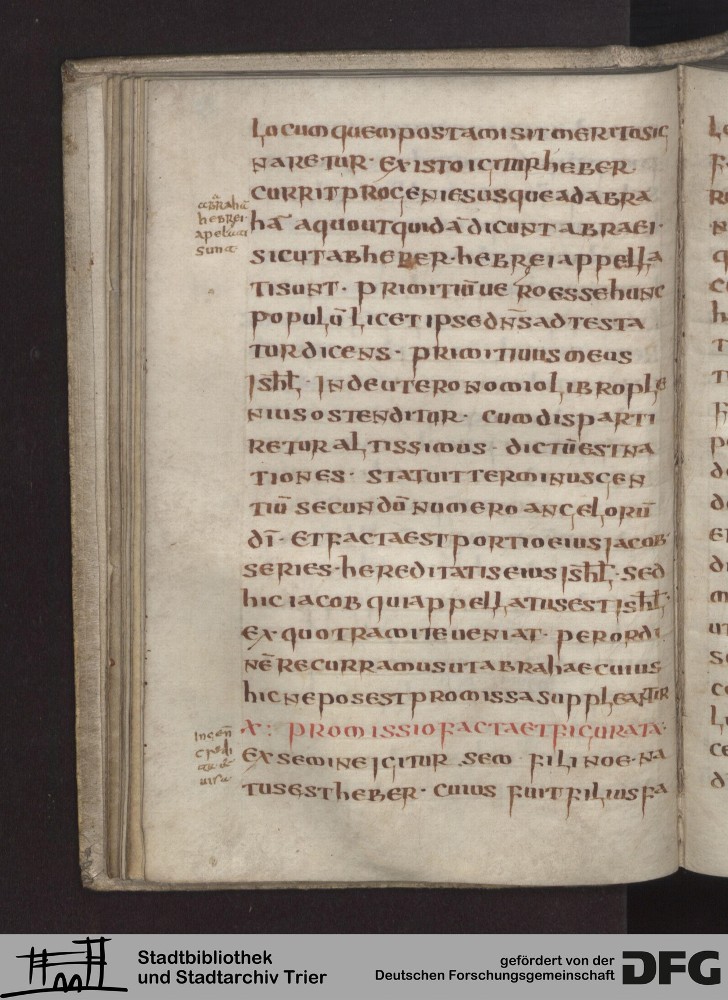 locum quem postam isit meritosig
naretur · ex isto igitur heber
currit progenies usque ad abra
hā a quo ut quidā dicunt abraei ·
sicut ab heber · hebrei appella
ti sunt · primitiū ue ro esse hunc
populū licet ipse dn̄s ad testa
tur dicens · primitiuus meus
isħl · in deuteronomio libro ple
nius ostenditur · cum disparti
retur altissimus · dictū est na
tiones · statuit terminus gen
tiū secundū numero angelorū
dī · et facta est portio eius jacob ·
series · hereditatis eius isħl · sed
hic iacob qui appellatus est isħl ·
ex quo tramite ueniat · per ordi
nē recurramus ut abrahae cuius
hic nepos est promissa suppleantur
x : promissio facta et figurata ·
ex semine igitur sem fili noe · na
tus est heber · cuius fuit filius fa
abrahā
hebrei
apellati
sunt
in gen̄
Stadtbibliothek
und Stadtarchiv Trier
gefördert von der
Deutschen Forschungsgemeinschaft
DFG